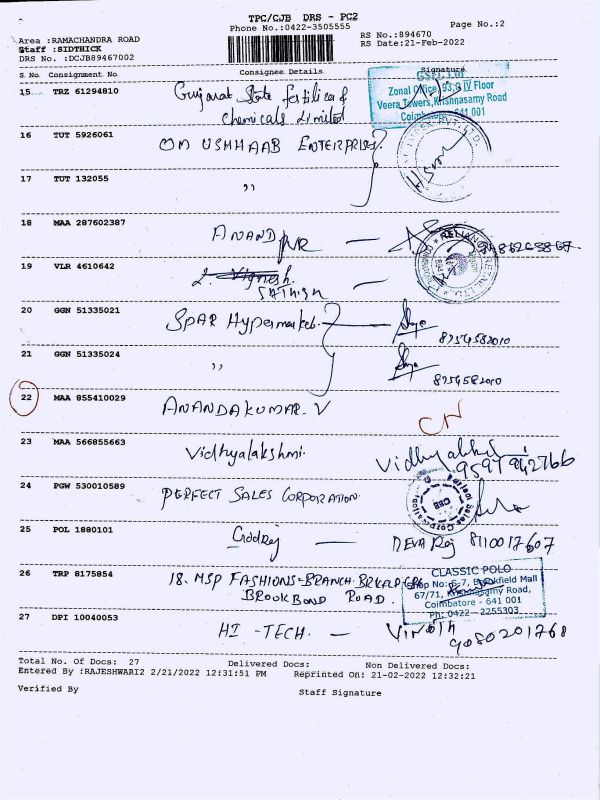 TPC/CJB DRS - PC2
Phone No.:0422-3505555
Page No.:2
Area :RAMACHANDRA ROAD
Staff :SIDTHICK
DRS No. :DCJB89467002
RS No.:894670
RS Date:21-Feb-2022
S No Consignment No Consignee Details Signature
15 TRZ 61294810 Gujarat State Fertilicef
Chemicals Limited
GSFC Ltd
Zonal Office, 93,9 IV Floor
Veera Towers, Krishnasamy Road
Coimbatore - 641 001
16 TUT 5926061 OM USHHAAB ENTERPRISES.
17 TUT 132055 ,,
18 MAA 287602387 ANAND
19 VLR 4610642 Vignesh.
SATHISH
RELIANCE RETAIL LTD
20 GGN 51335021 SPAR Hypermarket.
8754582010
21 GGN 51335024 ,,
8754582010
22 MAA 855410029 ANANDAKUMAR.V
23 MAA 566855663 Vidhyalakshmi.
9597942766
24 PGW 530010589 PERFECT SALES CORPORATION
25 POL 1880101 Godrej — DEVARaj 8110017607
26 TRP 8175854 18. MSP FASHIONS-BRANCH
BROOKBOND ROAD
CLASSIC POLO
Shop No: G-7, Brookfield Mall
67/71, Krishnasamy Road,
Coimbatore - 641 001
Ph: 0422 - 2255303
27 DPI 10040053 HI-TECH. — VINOTH
9080201768
Total No. Of Docs: 27 Delivered Docs: Non Delivered Docs:
Entered By :RAJESHWARI2 2/21/2022 12:31:51 PM Reprinted On: 21-02-2022 12:32:21
Verified By Staff Signature